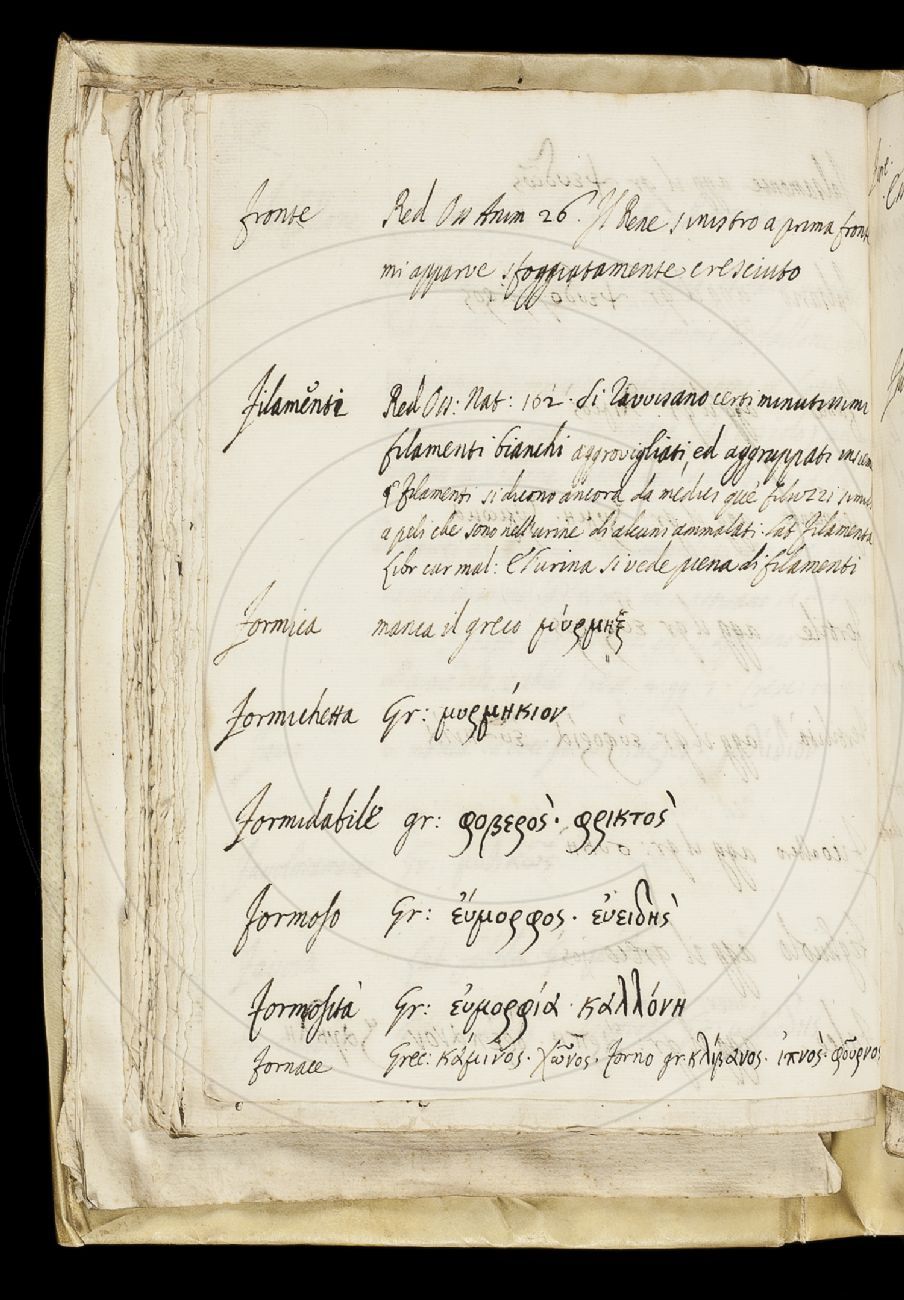 fronte Red Oss Anim 26. Il Rene sinistro a prima fronte
mi apparve sfoggiatamente cresciuto
filamenti Red Oss: Nat: 162. si ravvisano certi minutissimi
filamenti bianchi aggrovigliati, ed aggruppati insiem
filamenti si dicono ancora da medici que' filuzzi simili
a peli che sono nell'urine di alcuni ammalati. Lat filamenta
Libr cur mal: E l'urina si vede piena di filamenti
formica manca il greco μύρμηξ
formichetta Gr: μυρμήκιον
formidabile gr: φοβερὸς· φρικτὸς
formoso Gr: εὔμορφος· εὐειδὴς
formosità Gr: εὐμορφία· καλλόνη
fornace Grec: κάμινος· χῶνος· forno gr. κλίβανος· ἰπνὸς· φοῦρνος